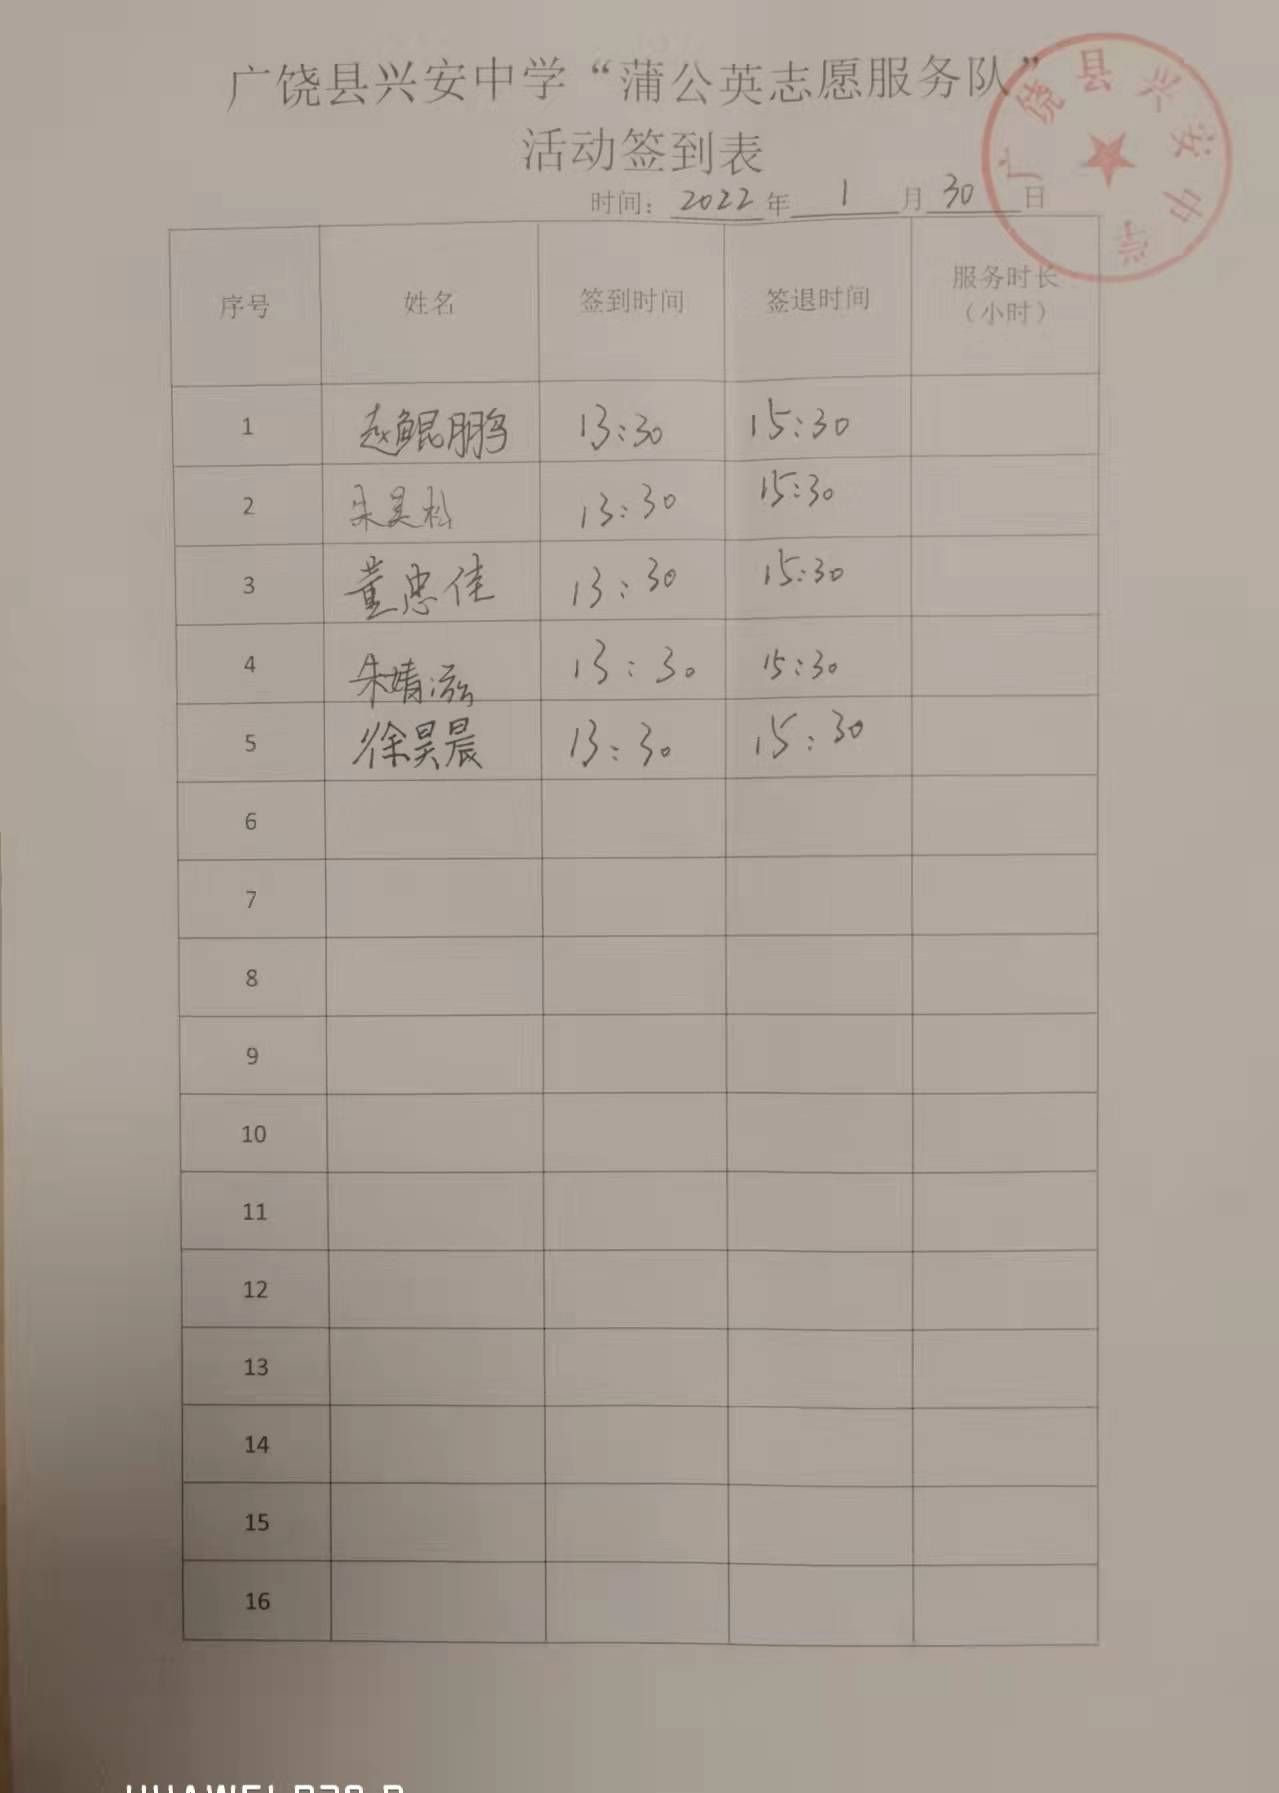 广饶县兴安中学“蒲公英志愿服务队”
活动签到表
广饶县兴安中学
时间：2022年1月30日
序号 姓名 签到时间 签退时间 服务时长（小时）
1 赵鲲鹏 13:30 15:30
2 朱昊 13:30 15:30
3 董忠佳 13:30 15:30
4 朱婧泓 13:30 15:30
5 徐昊晨 13:30 15:30
6
7
8
9
10
11
12
13
14
15
16